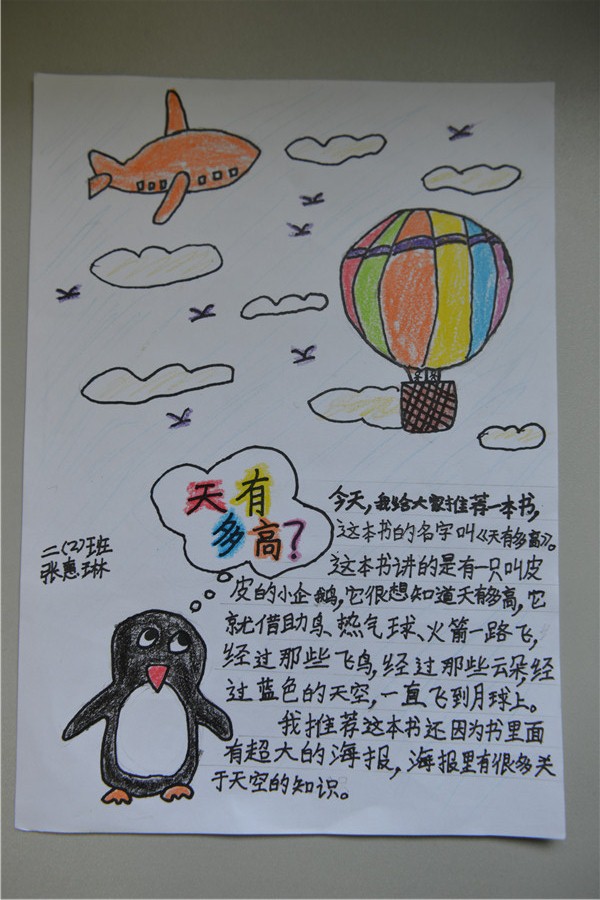 天有
多高？
二(2)班
张惠琳
今天,我给大家推荐一本书,
这本书的名字叫《天有多高》。
这本书讲的是有一只叫皮
皮的小企鹅,它很想知道天有多高,它
就借助鸟、热气球、火箭一路飞,
经过那些飞鸟,经过那些云朵,经
过蓝色的天空,一直飞到月球上。
我推荐这本书还因为书里面
有超大的海报,海报里有很多关
于天空的知识。